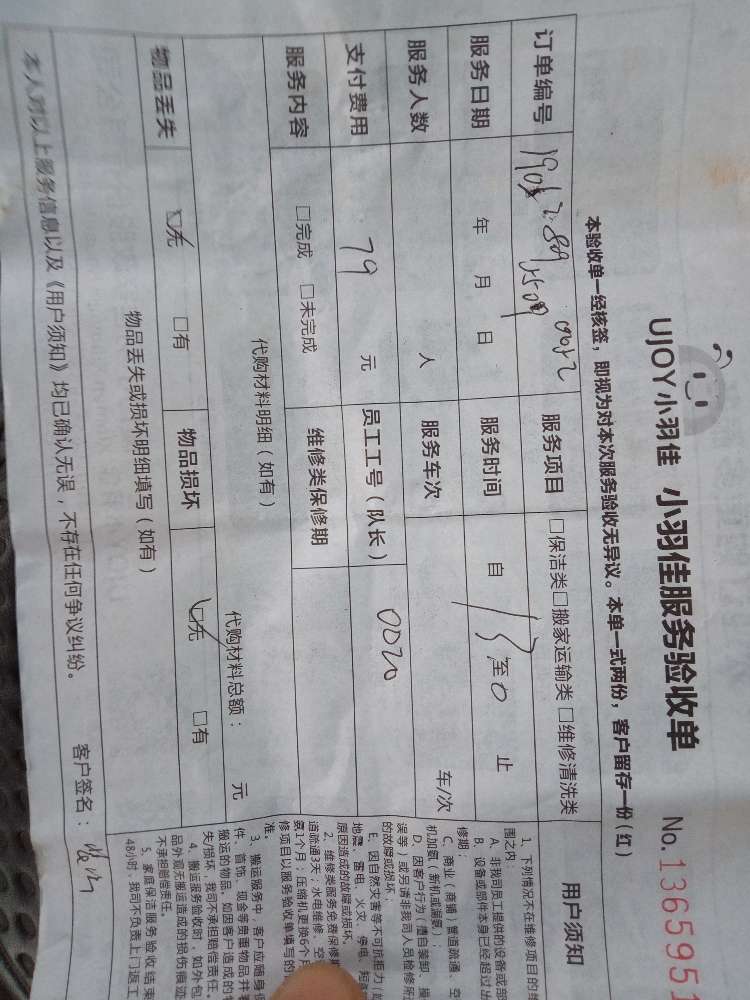 UJOY小羽佳 小羽佳服务验收单 No.1365951
本验收单一经核签，即视为对本次服务验收无异议。本单一式两份，客户留存一份（红）
订单编号 服务项目 □保洁类□搬家运输类□维修清洗类
服务日期 年 月 日 服务时间 自 13 至 0 止
服务人数 人 服务车次 车/次
支付费用 79 元 员工工号（队长） 0020
服务内容 □完成 □未完成 维修类保修期
代购材料明细（如有） 代购材料总额： 元
物品丢失 □无 □有 物品损坏 □无 □有
物品丢失或损坏明细填写（如有）
本人对以上服务信息以及《用户须知》均已确认无误，不存在任何争议纠纷。
客户签名：
用户须知
1、下列情况不在维修项目的维
围之内：
A、非我司员工提供的设备或部
B、设备或部件本身已经超过出
修期；
C、商业（商铺）管道疏通、空
机加氨（新机或漏氨）；
D、因客户行为（擅自装卸、操
误等）或另请非我司人员检修所
的故障或损坏；
E、因自然灾害等不可抗拒力（
地震、雷电、火灾、停电、短
原因造成的故障或损坏。
2、维修类服务免费保修
道疏通3天；水电维修、空
氨1个月；压缩机更换6个月
修项目以服务验收单填写的
准。
3、搬运服务中，客户应随身
件、首饰、现金等贵重物品并
搬运的物品，如因客户造成的
失/损坏，我司不承担赔偿责任。
4、搬运服务验收时，如外包
品外观无搬运造成的损伤痕迹
不承担赔偿责任。
5、家庭保洁服务验收结束
48小时，我司不负责上门返工